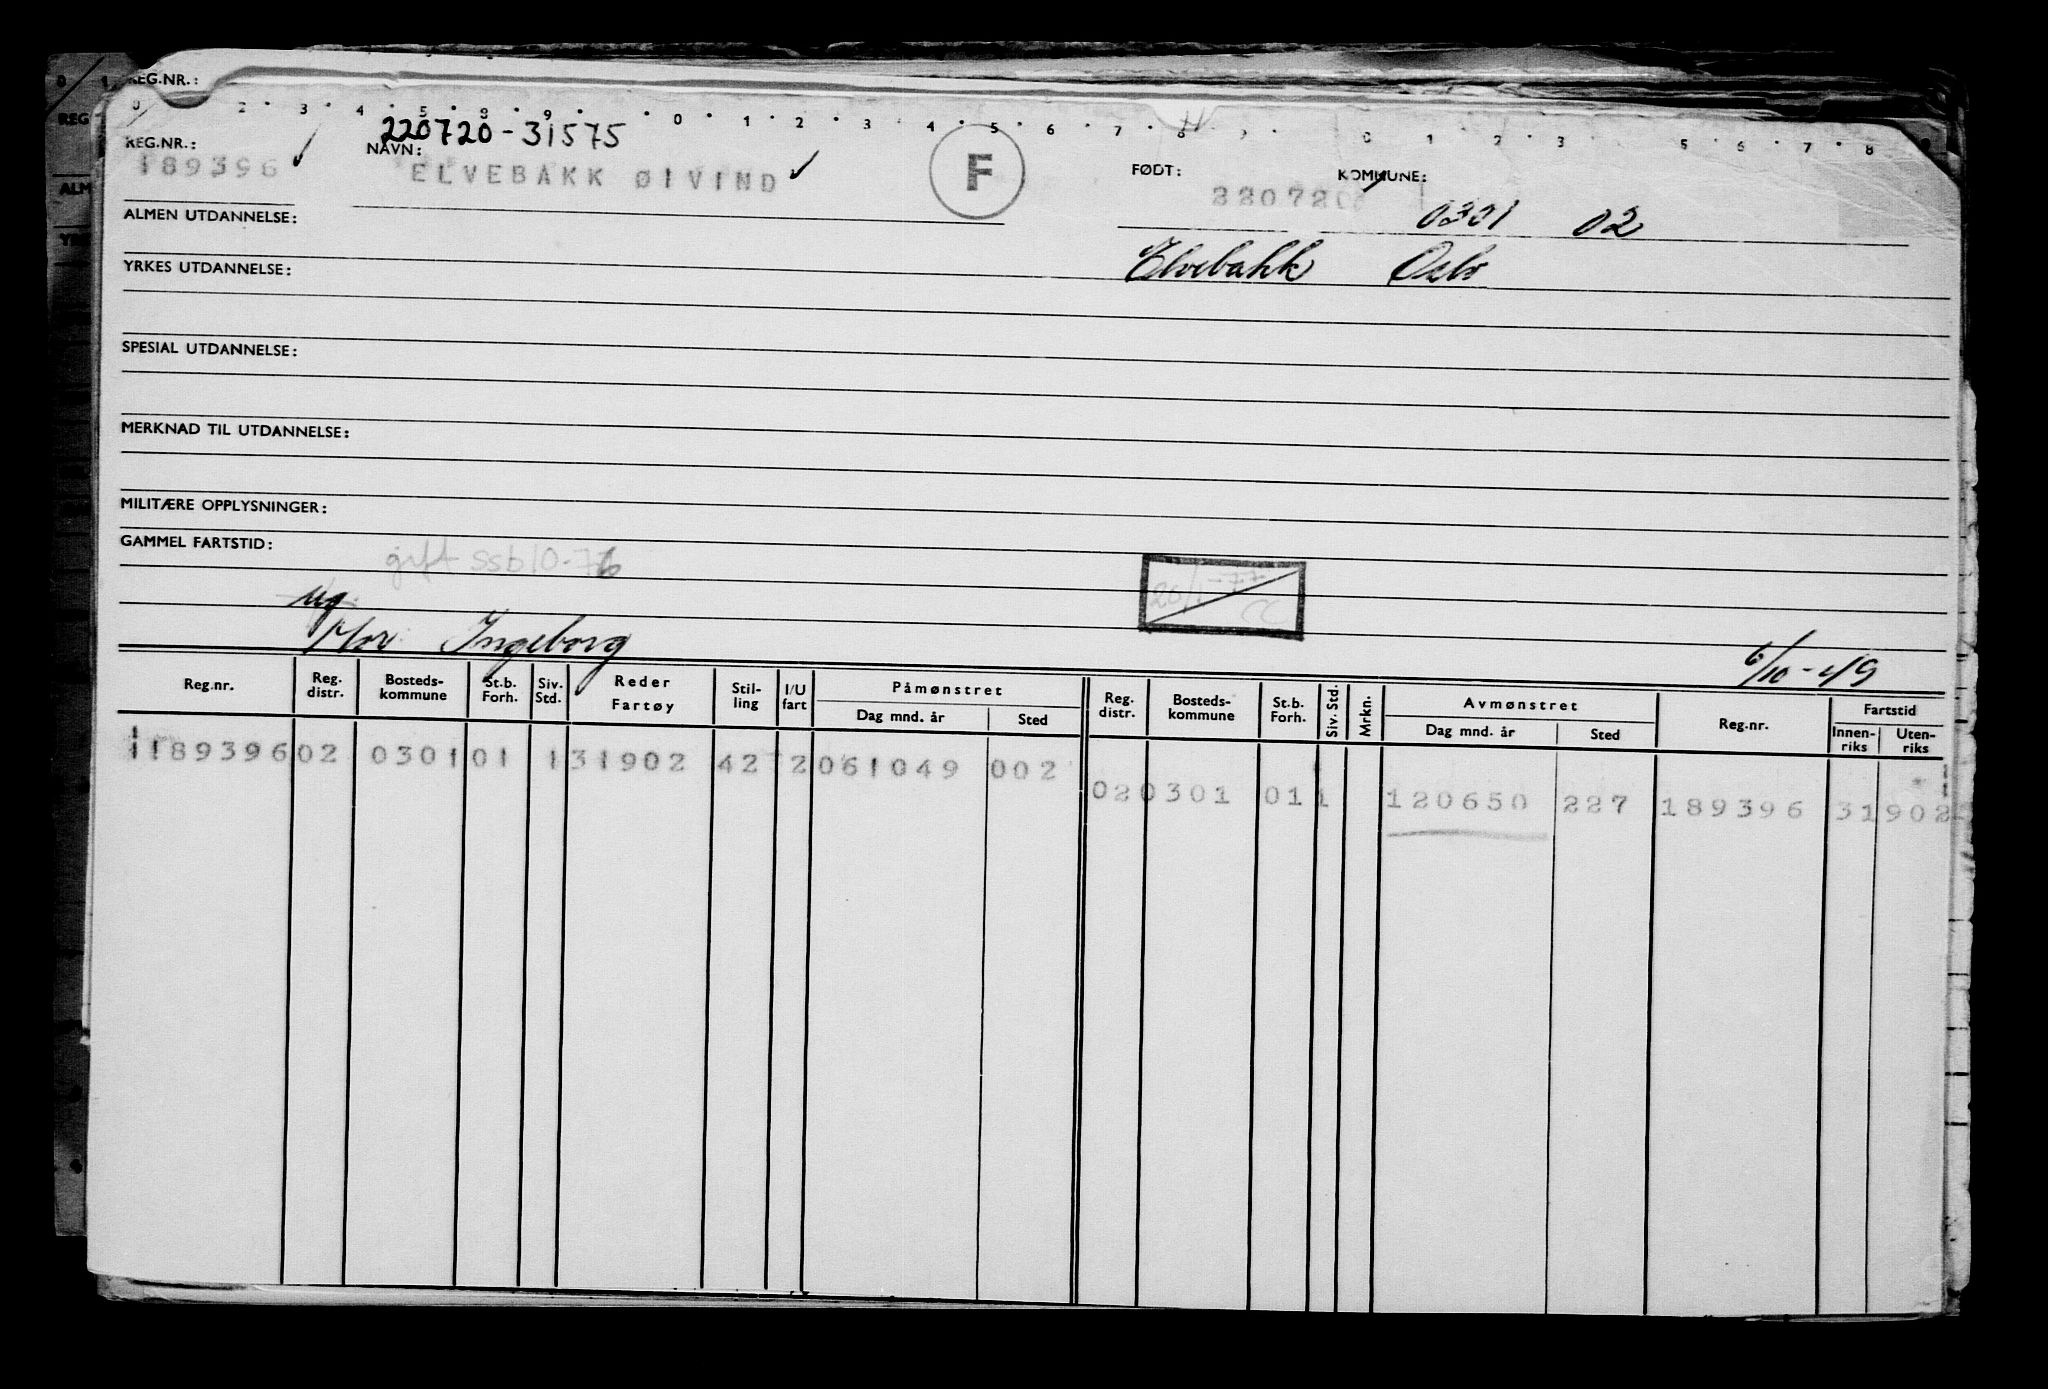 REG.NR.:
2 3 4 5 8 9 0 1 2 3 4 5 6 7 8 0 1 2 3 5 6 7 8
220720-31575
REG.NR.: NAVN: F FØDT: KOMMUNE:
189396 ELVEBAKK ØIVIND 220720 0301 02
ALMEN UTDANNELSE:
Elvebakk Oslo
YRKES UTDANNELSE:
SPESIAL UTDANNELSE:
MERKNAD TIL UTDANNELSE:
MILITÆRE OPPLYSNINGER:
GAMMEL FARTSTID:
gift ssb 10-76
20/1-77
CC
ug
Mor Ingeborg 6/10-49
Reg.nr. Reg. distr. Bosteds-kommune St.b. Forh. Siv. Std. Reder Fartøy Stil-ling I/U fart Påmønstret Dag mnd. år Sted Reg. distr. Bosteds-kommune St.b. Forh. Siv. Std. Mrkn. Avmønstret Dag mnd. år Sted Reg.nr. Fartstid Innen-riks Uten-riks
1189396 02 0301 01 1 31902 42 2 061049 002
02 0301 01 1 120650 227 189396 31902